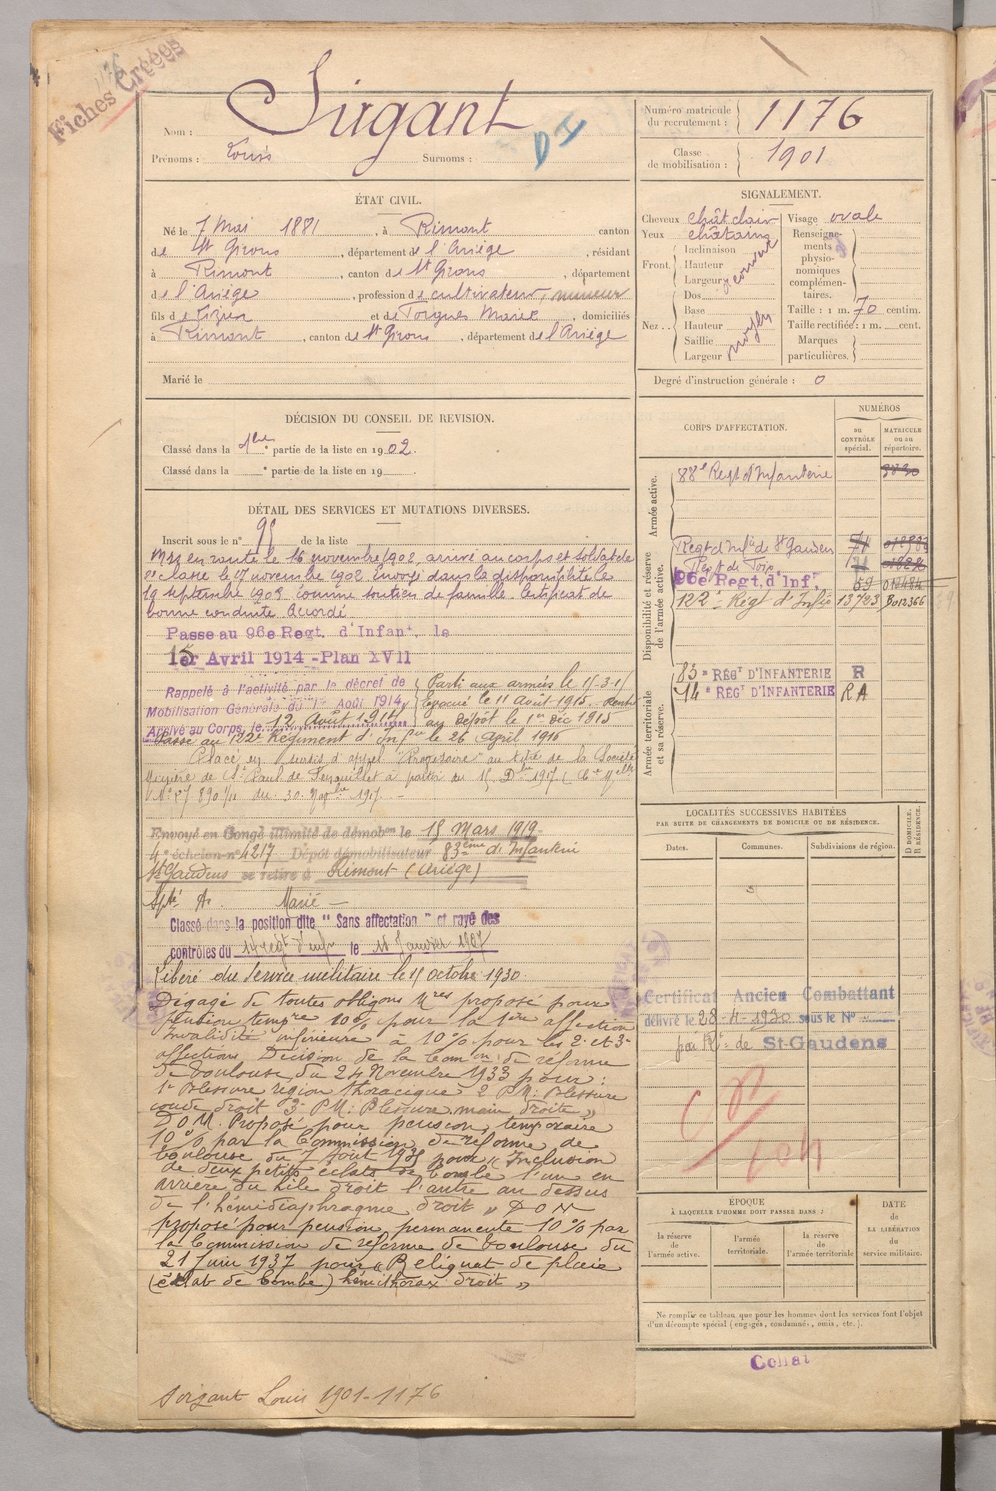 Fiches Créées
Nom : Sirgant
Prénoms : Louis Surnoms :
D I
Numéro matricule du recrutement : 1176
Classe de mobilisation : 1901
ÉTAT CIVIL.
Né le 7 Mai 1881, à Rimont canton
de St Girons, département de l'Ariège, résidant
à Rimont, canton de St Girons, département
de l'Ariège, profession de cultivateur, mineur
fils de Lizier et de Torgues Marie, domiciliés
à Rimont, canton de St Girons, département de l'Ariège
Marié le
SIGNALEMENT.
Cheveux chât clair
Yeux châtains
Front. Inclinaison
Hauteur
Largeur
Nez. Dos
Base
Hauteur
Saillie
Largeur
Visage ovale
Renseignements physionomiques complémentaires.
Taille : 1 m. 70 centim.
Taille rectifiée : 1 m. cent.
Marques particulières.
Degré d'instruction générale : 0
DÉCISION DU CONSEIL DE REVISION.
Classé dans la 1re partie de la liste en 1902.
Classé dans la e partie de la liste en 19 .
DÉTAIL DES SERVICES ET MUTATIONS DIVERSES.
Inscrit sous le n° 99 de la liste
Mis en route le 16 novembre 1902, arrivé au corps et soldat de
2e classe le 17 novembre 1902. Envoyé dans la disponibilité le
19 septembre 1903 comme soutien de famille. Certificat de
bonne conduite Accordé
Passe au 96e Regt. d'Infant. le
15 Avril 1914 - Plan XVII
Rappelé à l'activité par le décret de
Mobilisation Générale du 1er Août 1914,
Arrivé au Corps le 12 Août 1914
Parti aux armées le 15.3.15
Evacué le 11 août 1915. Rentré
au dépôt le 1er Déc 1915
Passé au 122e Régiment d'Infie le 26 April 1916
Placé en sursis d'appel "Provisoire" au titre de la Société
Minière de St Paul de Fenouillet à partir du 15 Dbre 1917
N° 27 890 1/11 du 30 Novbre 1917. -
Envoyé en Congé illimité de démobon le 18 Mars 1919
4e échelon n° 4217 Dépôt démobilisateur 83ème d'Infanterie
St Gaudens se retire à Rimont (Ariège)
Marié —
Classé dans la position dite "Sans affectation" et rayé des
contrôles du 14 regt d'inf le 15 Janvier 1927
Libéré du Service militaire le 15 octobre 1930
Dégagé de toutes obligons Mres proposé pour
pension tempre 10% pour la 1ère affection
Invalidité inférieure à 10% pour les 2e et 3e
affections. Décision de la Comon de réforme
de Toulouse du 24 Novembre 1933 pour :
1° Blessure région thoracique 2° PM: Blessure
coude droit 3° PM: Blessure main droite »
DOM. Proposé pour pension temporaire
10% par la Commission de réforme de
Toulouse du 7 Août 1935 pour « Inclusion
de deux petits éclats de bombe l'un en
arrière du hile droit l'autre au dessus
de l'hémidiaphragme droit » DOM
proposé pour pension permanente 10% par
la Commission de réforme de Toulouse du
21 Juin 1937 pour « Reliquat de plaie
(éclat de bombe) hémithorax droit »
Sirgant Louis 1901-1176
CORPS D'AFFECTATION.
NUMÉROS
AU CONTRÔLE spécial.
MATRICULE ou au répertoire.
Armée active.
88e Regt d'Infanterie
Disponibilité et réserve de l'armée active.
Regt d'Infie de St Gaudens
Regt de Foix
96e Regt. d'Inf. 59 012484
122e Regt d'Infie 13723 B012366
Armée territoriale et sa réserve.
83e RÉGt D'INFANTERIE R
14e RÉGt D'INFANTERIE RA
LOCALITÉS SUCCESSIVES HABITÉES
PAR SUITE DE CHANGEMENTS DE DOMICILE OU DE RÉSIDENCE.
Dates.
Communes.
Subdivisions de région.
D. DOMICILE.
R. RÉSIDENCE.
Certificat Ancien Combattant
délivré le 28-4-1930 sous le N°
de St-Gaudens
ÉPOQUE
À LAQUELLE L'HOMME DOIT PASSER DANS :
la réserve de l'armée active.
l'armée territoriale.
la réserve de l'armée territoriale
DATE de LA LIBÉRATION du service militaire.
Ne remplir ce tableau que pour les hommes dont les services font l'objet
d'un décompte spécial (engagés, condamnés, omis, etc.).